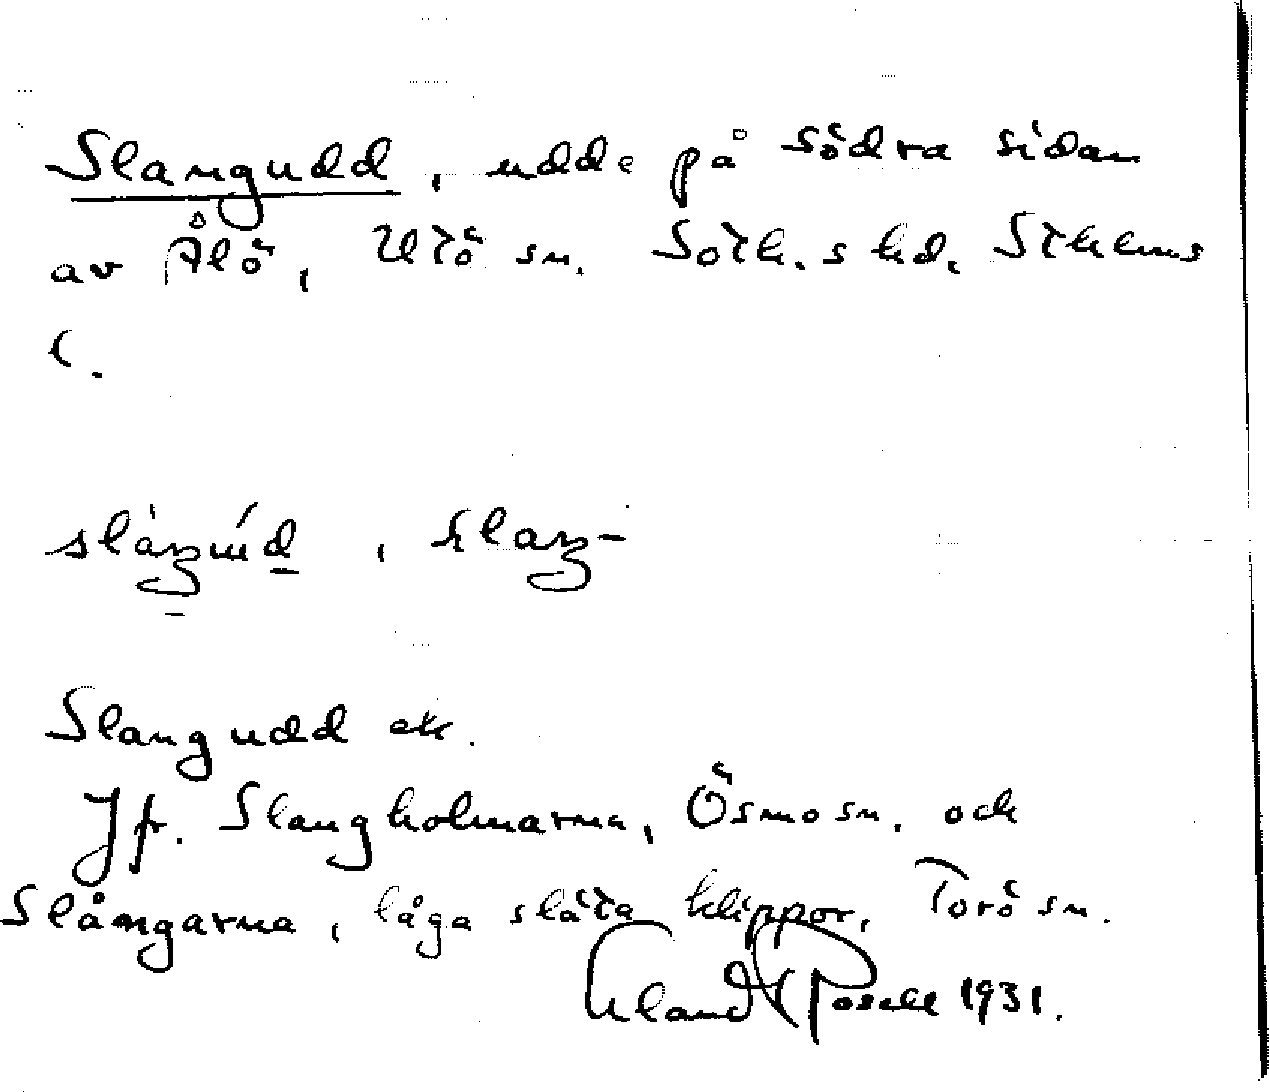 Slangudd, udde på södra sidan
av Ålö, Utö sn. Soth.s hd. Sthlms
l.
Slangudd ek.
Jfr. Slangholmarna, Ösmo sn. och
Slångarna, låga släta klippor, Torö sn.
Erland Rosell 1931.